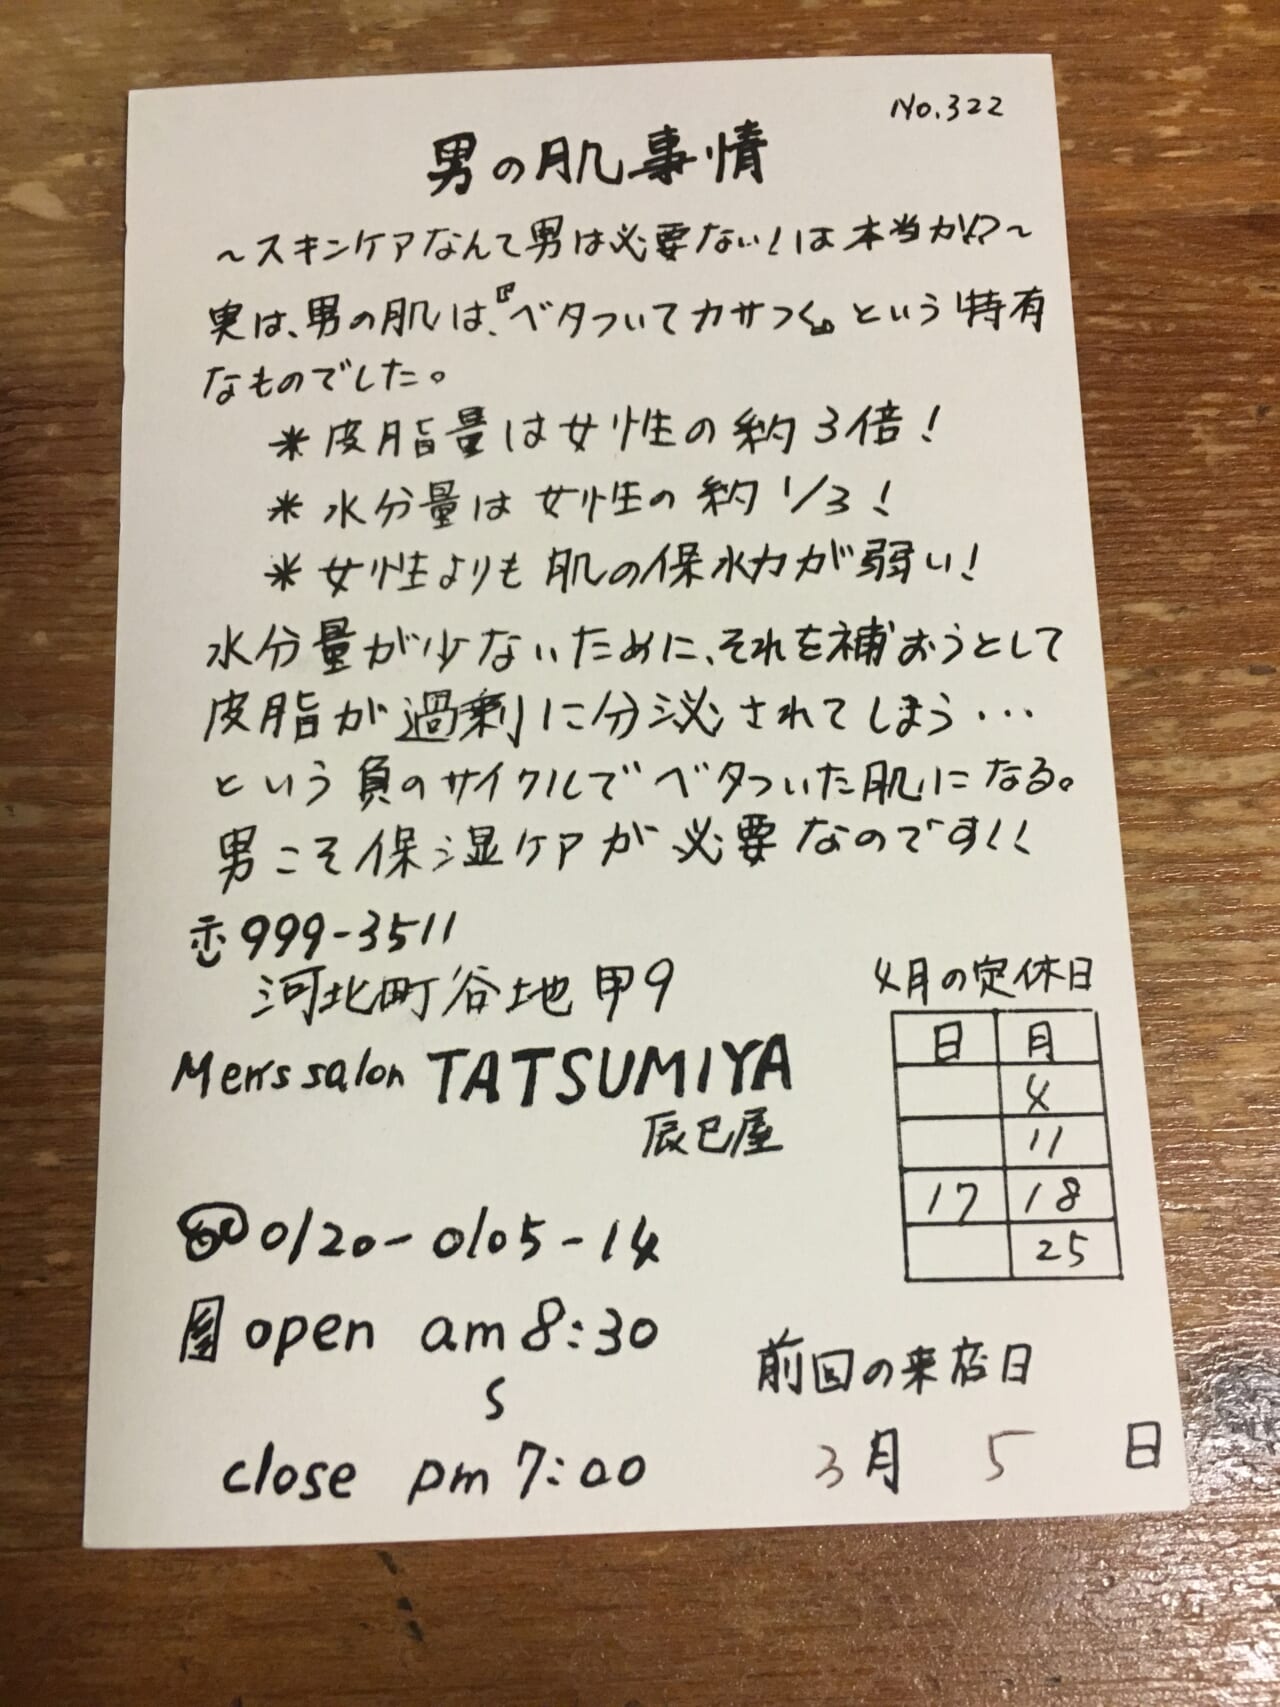 No.322
男の肌事情
～スキンケアなんて男は必要ない！は本当か!?～
実は、男の肌は、『ベタついてカサつく』という特有
なものでした。
＊皮脂量は女性の約3倍！
＊水分量は女性の約1/3！
＊女性よりも肌の保水力が弱い！
水分量が少ないために、それを補おうとして
皮脂が過剰に分泌されてしまう・・・
という負のサイクルでベタついた肌になる。
男こそ保湿ケアが必要なのです！！
〠999-3511
河北町谷地甲9
Men's salon TATSUMIYA
辰巳屋
0120-0105-14
open am 8:30
S
close pm 7:00
4月の定休日
日 月
4
11
17 18
25
前回の来店日
3月 5 日